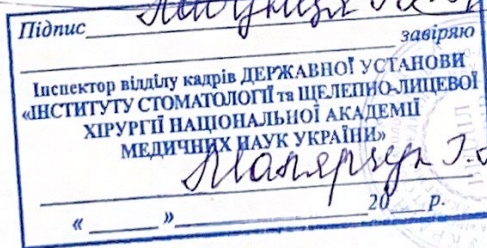 Підпис
завіряю
Інспектор відділу кадрів ДЕРЖАВНОЇ УСТАНОВИ
«ІНСТИТУТУ СТОМАТОЛОГІЇ та ЩЕЛЕПНО-ЛИЦЕВОЇ
ХІРУРГІЇ НАЦІОНАЛЬНОЇ АКАДЕМІЇ
МЕДИЧНИХ НАУК УКРАЇНИ»
Малярчук
«______»____________20___р.